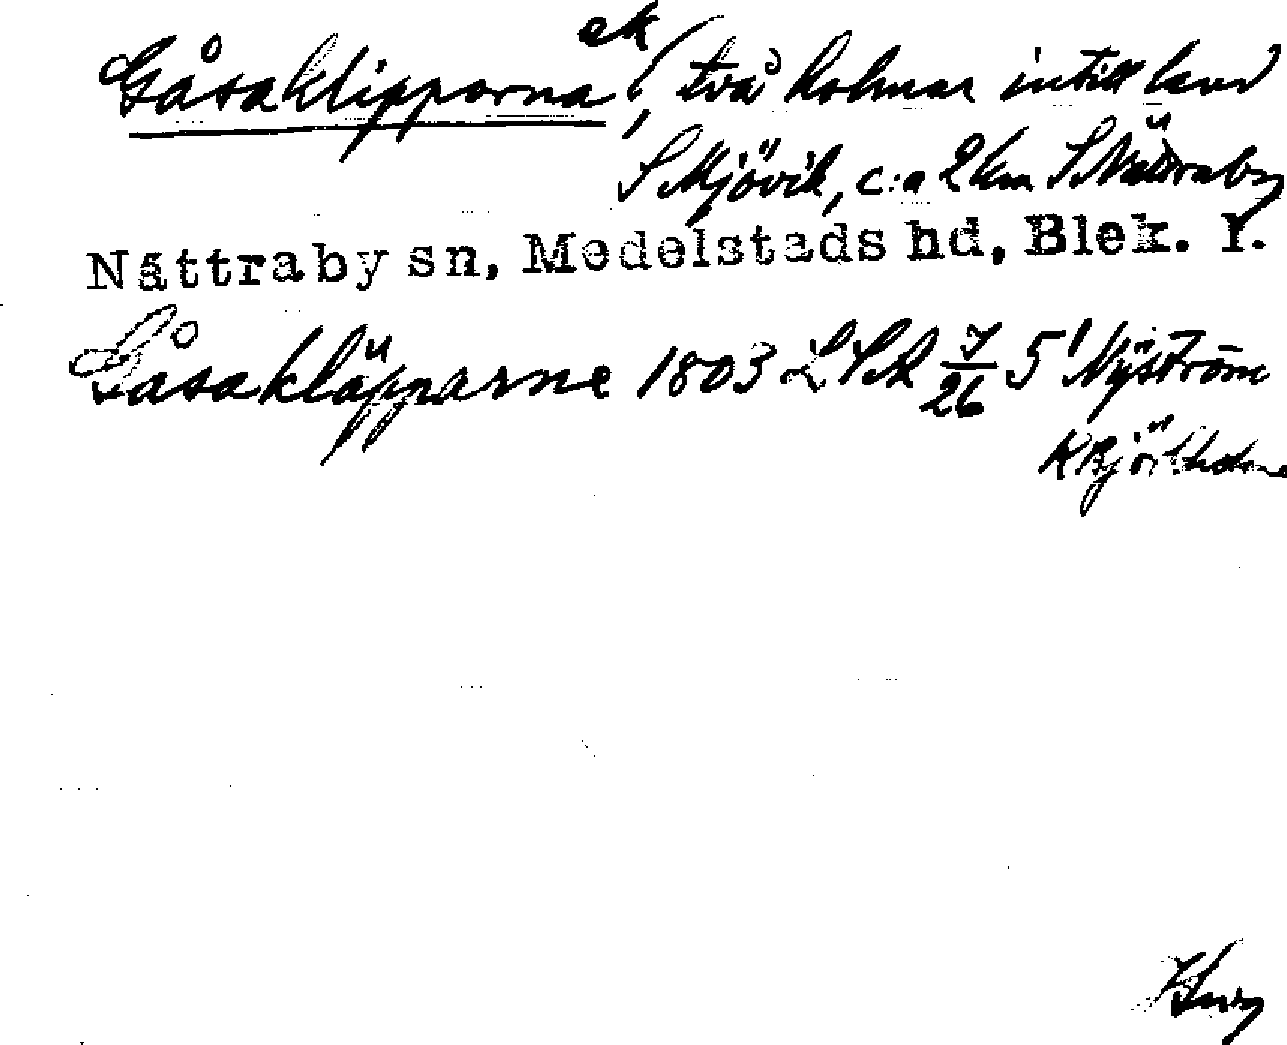 Gåsaklipporna ek (, två holmar intill land
S Mjövik, c:a 2 km S Nättraby
Nättraby sn, Medelstads hd, Blek. l.
Gåsakläpparne 1803 LSA 7/26 5 Nyström